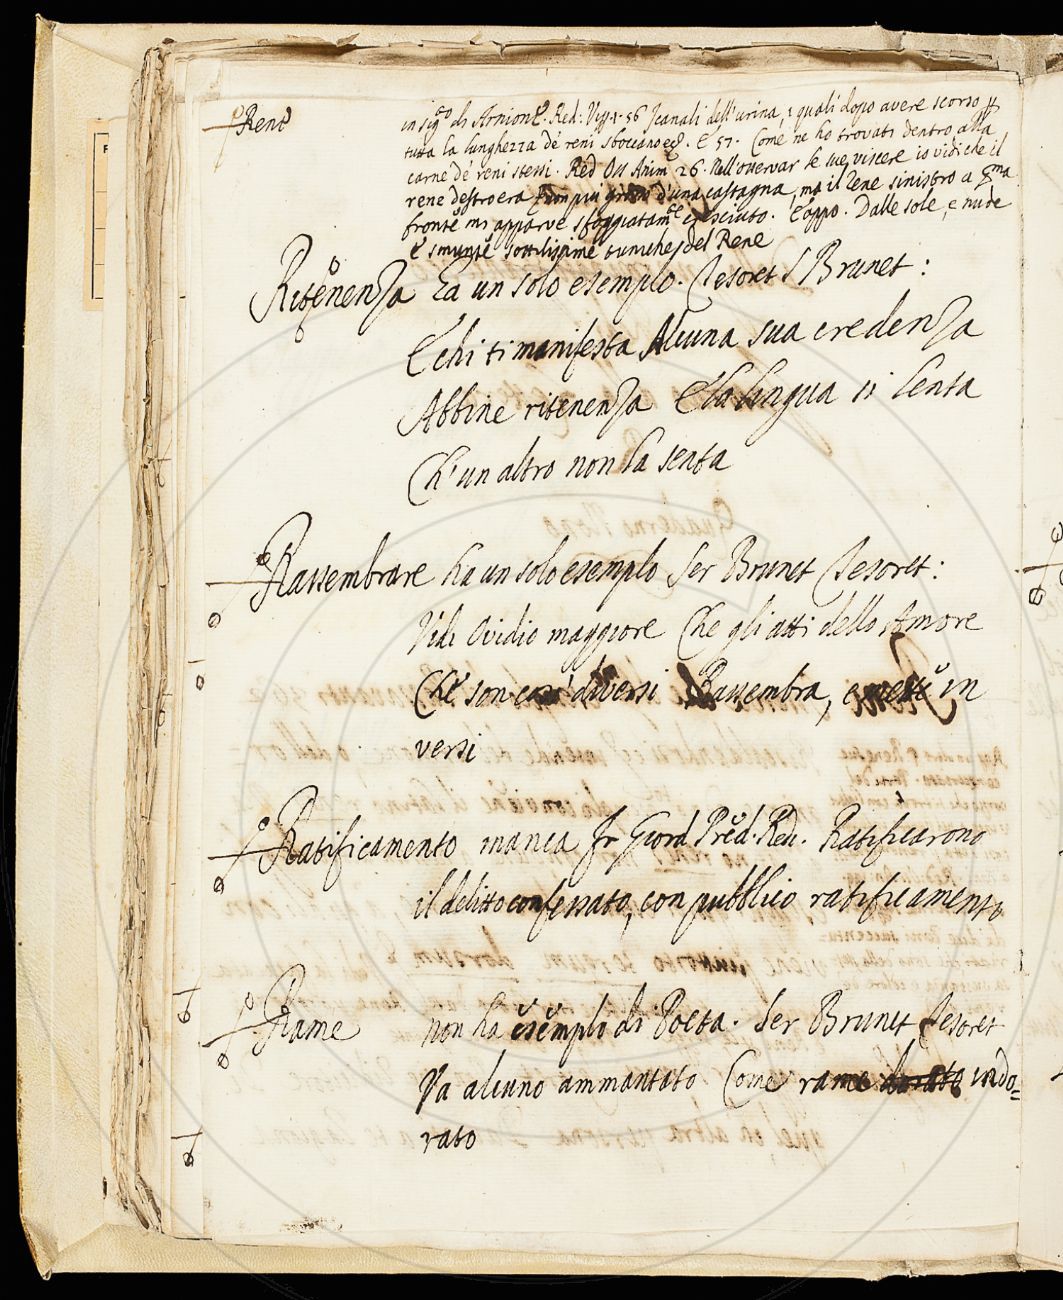 Rene in sig.to di Arnioni. Red. Vip. 1. 56 I canali dell'urina, i quali dopo avere scorso
tutta la lunghezza de' reni sboccano. E 57. Come ne ho trovati dentro alla
carne de' reni stessi. Red Oss Anim 26. Nell'osservar le sue viscere io vidi che il
rene destro era non più grosso d'una castagna, ma il rene sinistro a p.ma
fronte mi apparve sfoggiatam.te cresciuto. E appo. Dalle sole, e nude
e smunte sottilissime tuniche del Rene
Ritenenza Ha un solo esemplo. Tesoret S Brunet:
E chi ti manifesta Alcuna sua credenza
Abbine ritenenza E la lingua sì lenta
Ch'un altro non la senta
Rassembrare ha un solo esemplo Ser Brunet Tesoret:
Vidi Ovidio maggiore Che gli atti dello Amore
Che son così diversi Rassembra, e mette in
versi
Ratificamento manca Fr Giord Pred. Red. Ratificarono
il delitto confessato, con pubblico ratificamento
Rame non ha esemplo di Poeta. Ser Brunet Tesoret
Va alcuno ammantato Come rame dorato indo=
rato